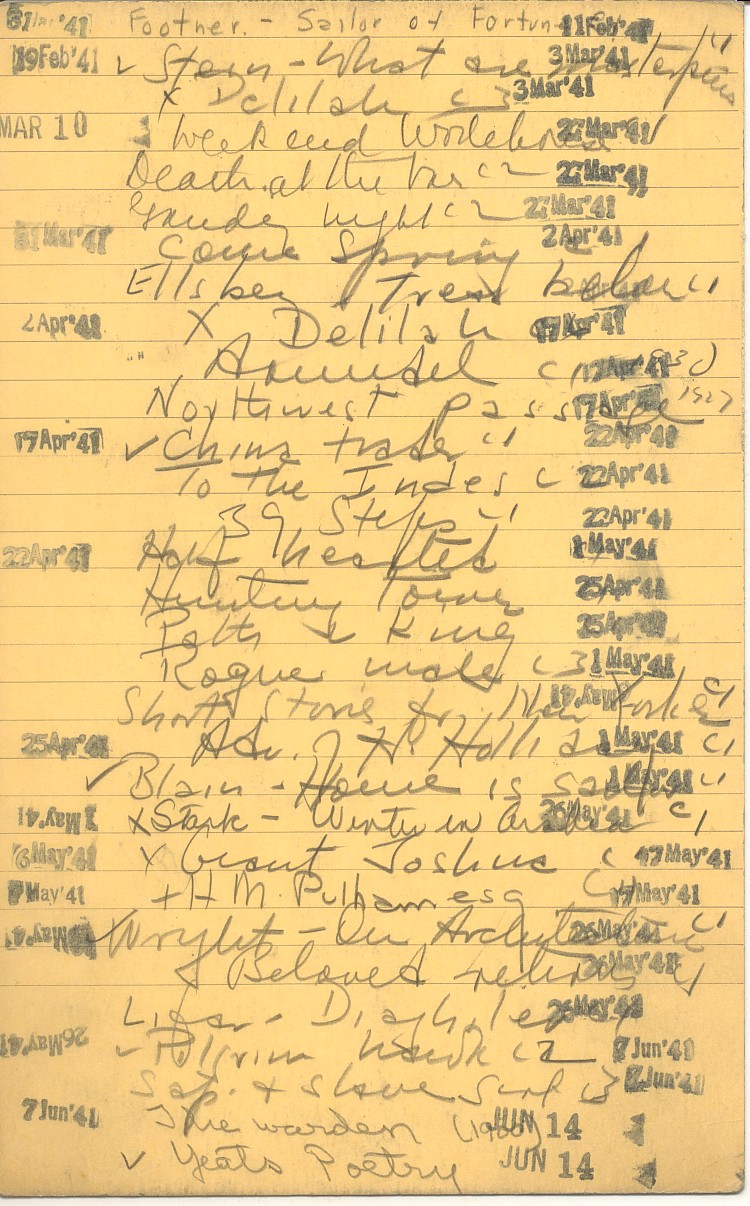 31 Jan '41 Footner. - Sailor of Fortune 11 Feb '41
19 Feb '41 ✓ Stein - What are masterpieces c1 3 Mar '41
x Delilah c3 3 Mar '41
MAR 10 Week end Wodehouse c1 27 Mar '41
Death at the bar c2 27 Mar '41
Gaudy night c2 27 Mar '41
31 Mar '41 Come Spring c1 2 Apr '41
Ellsberg Treas below c1
2 Apr '41 X Delilah 17 Apr '41
Arundel c1 17 Apr '41
Northwest passage 1937 17 Apr '41
17 Apr '41 ✓ China trader c1 22 Apr '41
To the Indies c 22 Apr '41
39 Steps c1 22 Apr '41
22 Apr '41 Half hearted 1 May '41
Hunting Tower 25 Apr '41
Path of King 25 Apr '41
Rogue male c3 1 May '41
Short Stories fr. New Yorker c1 1 May '41
25 Apr '41 Adv. of H. c1 1 May '41
✓ Blain - Home is sailor c1 1 May '41
1 May '41 x Stark - Winter in Arabia c1 26 May '41
6 May '41 x Grant Joshua c 17 May '41
May '41 + H M Pulham esq c4 17 May '41
May '41 ✓ Wright - On Architecture c1 26 May '41
Beloved returns c1 26 May '41
Lifar - Diaghilev 26 May '41
26 May '41 ✓ Pilgrim hawk c2 7 Jun '41
Sap. + slave girl c3 7 Jun '41
7 Jun '41 The warden JUN 14
✓ Yeats Poetry JUN 14